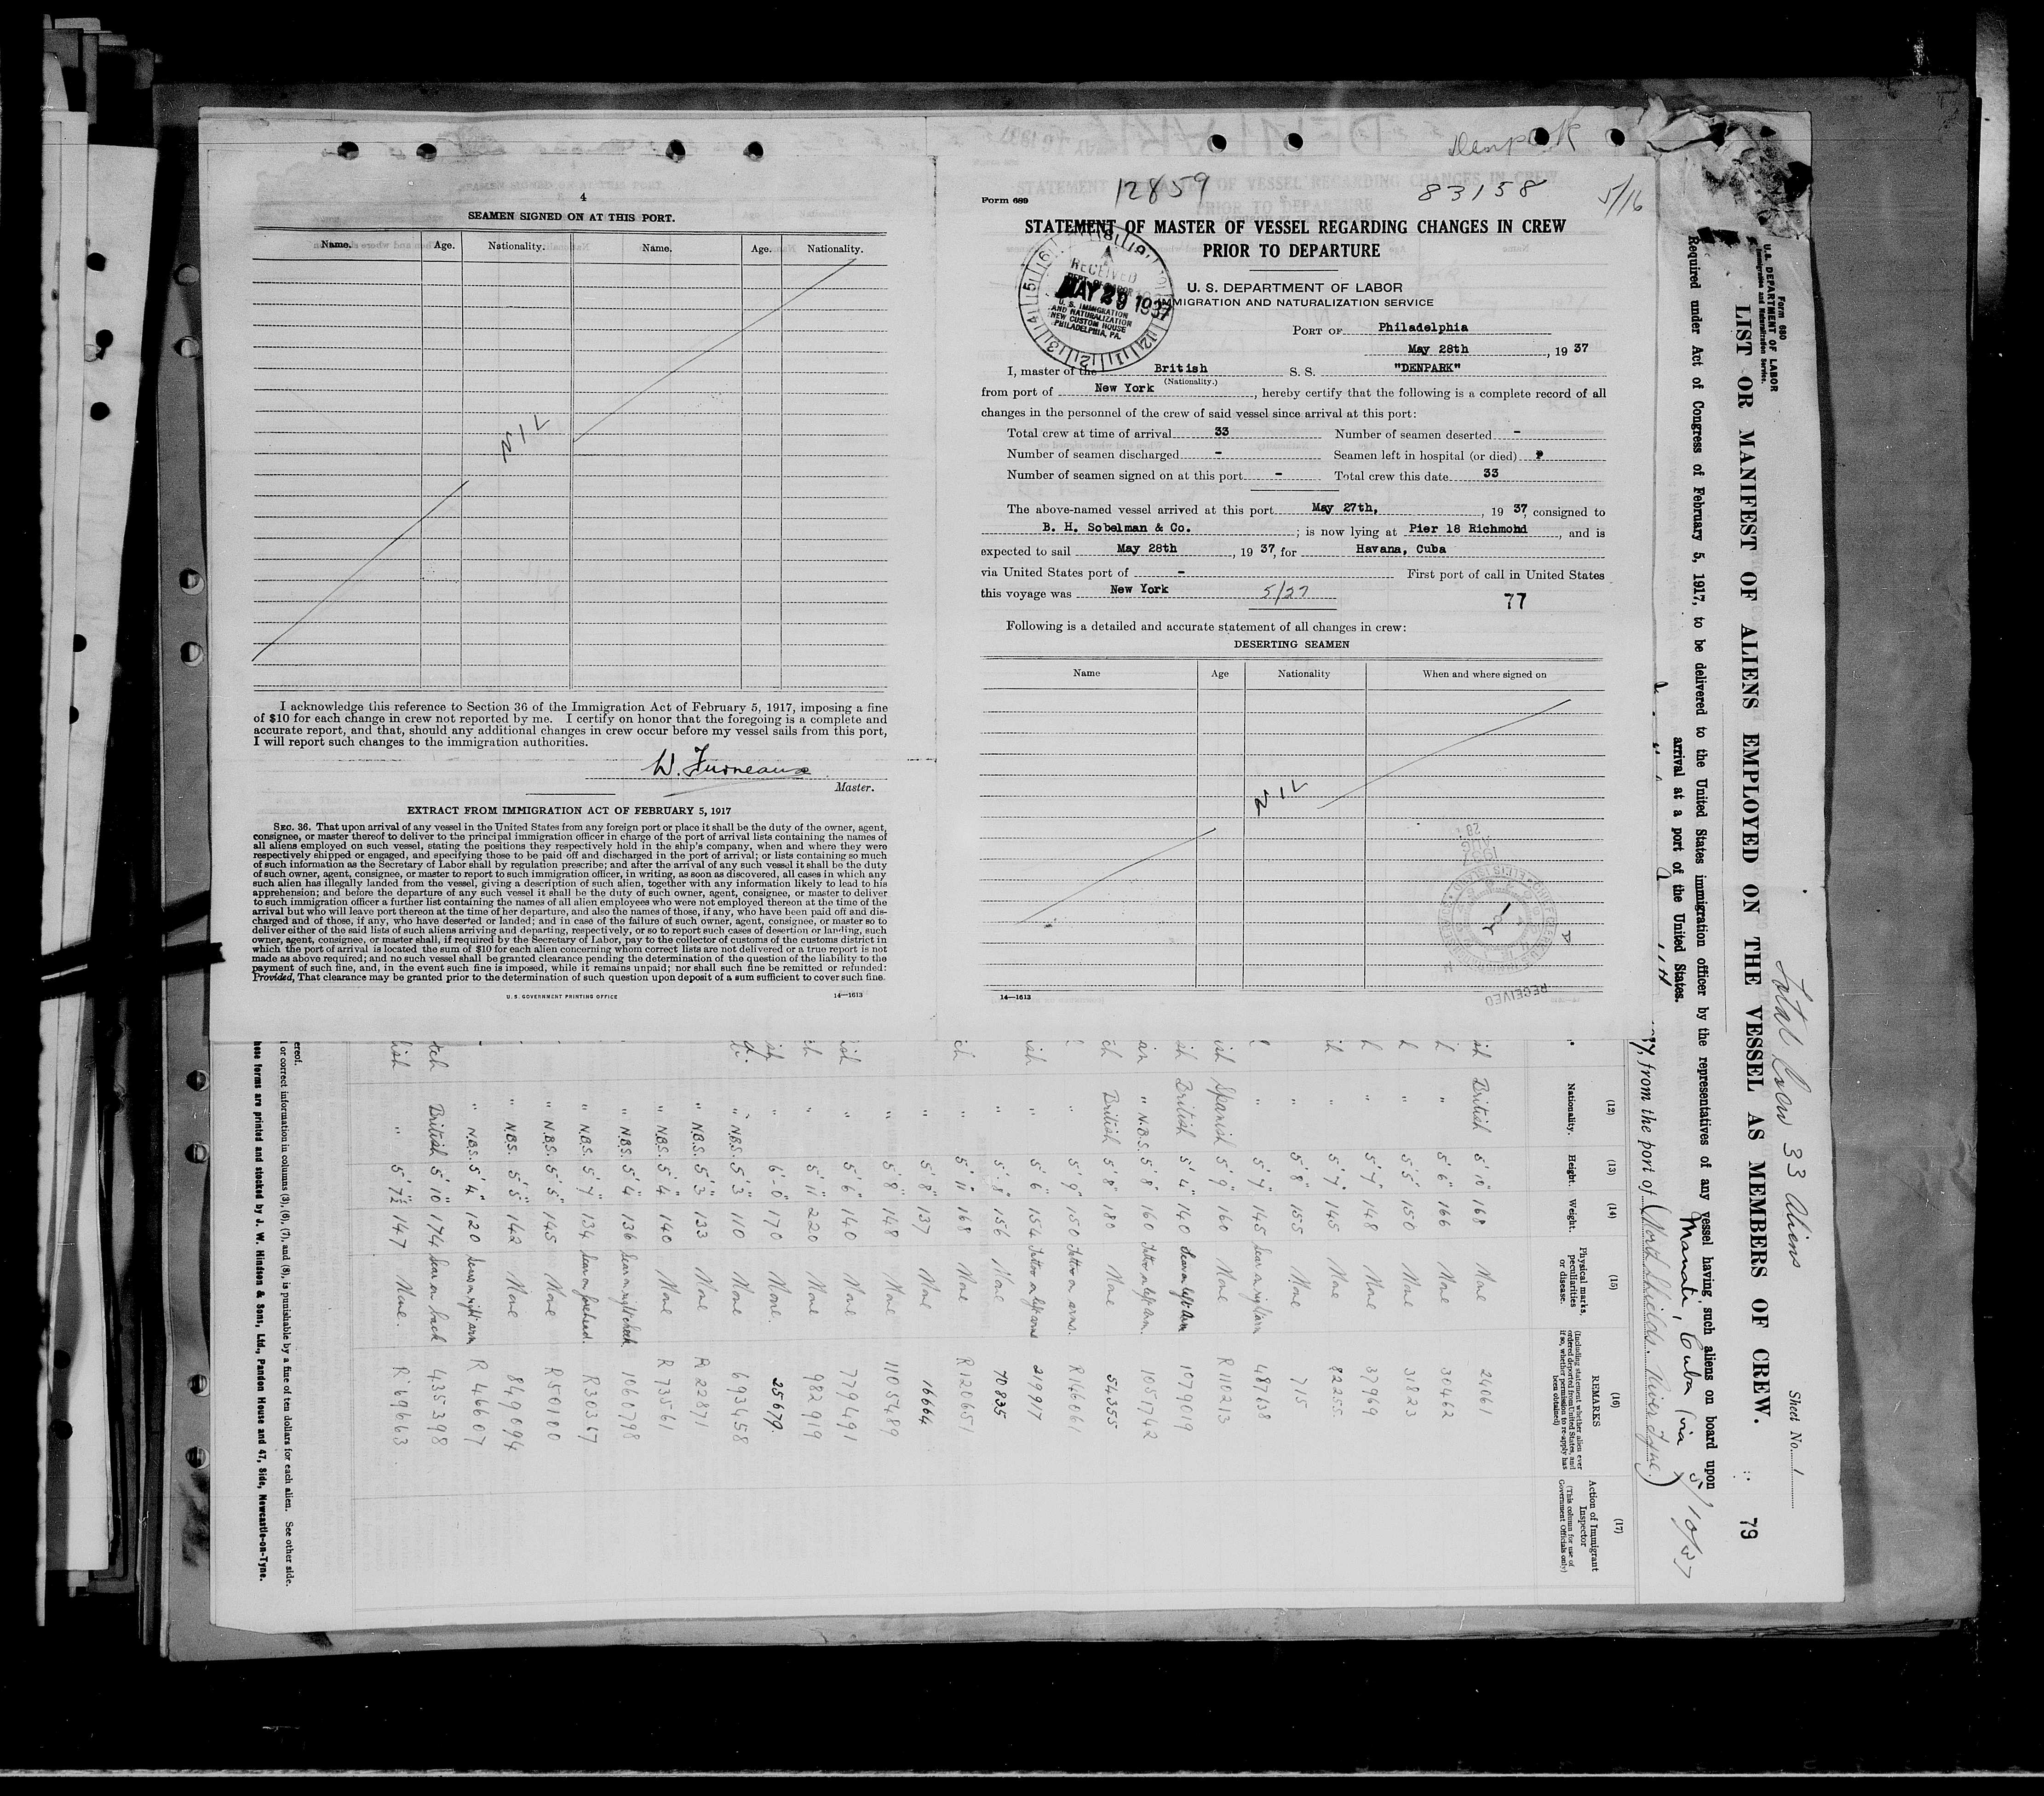 4
SEAMEN SIGNED ON AT THIS PORT.
Name. Age. Nationality. Name. Age. Nationality.
NIL
I acknowledge this reference to Section 36 of the Immigration Act of February 5, 1917, imposing a fine
of $10 for each change in crew not reported by me. I certify on honor that the foregoing is a complete and
accurate report, and that, should any additional changes in crew occur before my vessel sails from this port,
I will report such changes to the immigration authorities.
W. Furneaux
Master.
EXTRACT FROM IMMIGRATION ACT OF FEBRUARY 5, 1917
SEC. 36. That upon arrival of any vessel in the United States from any foreign port or place it shall be the duty of the owner, agent,
consignee, or master thereof to deliver to the principal immigration officer in charge of the port of arrival lists containing the names of
all aliens employed on such vessel, stating the positions they respectively hold in the ship's company, when and where they were
respectively shipped or engaged, and specifying those to be paid off and discharged in the port of arrival; or lists containing so much
of such information as the Secretary of Labor shall by regulation prescribe; and after the arrival of any such vessel it shall be the duty
of such owner, agent, consignee, or master to report to such immigration officer, in writing, as soon as discovered, all cases in which any
such alien has illegally landed from the vessel, giving a description of such alien, together with any information likely to lead to his
apprehension; and before the departure of any such vessel it shall be the duty of such owner, agent, consignee, or master to deliver
to such immigration officer a further list containing the names of all alien employees who were not employed thereon at the time of the
arrival but who will leave port thereon at the time of her departure, and also the names of those, if any, who have been paid off and dis-
charged and of those, if any, who have deserted or landed; and in case of the failure of such owner, agent, consignee, or master so to
deliver either of the said lists of such aliens arriving and departing, respectively, or so to report such cases of desertion or landing, such
owner, agent, consignee, or master shall, if required by the Secretary of Labor, pay to the collector of customs of the customs district in
which the port of arrival is located the sum of $10 for each alien concerning whom correct lists are not delivered or a true report is not
made as above required; and no such vessel shall be granted clearance pending the determination of the question of the liability to the
payment of such fine, and, in the event such fine is imposed, while it remains unpaid; nor shall such fine be remitted or refunded:
Provided, That clearance may be granted prior to the determination of such question upon deposit of a sum sufficient to cover such fine.
U. S. GOVERNMENT PRINTING OFFICE 14—1613
Denpark
12859 83158 5/16
Form 689
STATEMENT OF MASTER OF VESSEL REGARDING CHANGES IN CREW
PRIOR TO DEPARTURE
U. S. DEPARTMENT OF LABOR
IMMIGRATION AND NATURALIZATION SERVICE
RECEIVED
DEPT. OF LABOR
MAY 29 1937
U. S. IMMIGRATION
AND NATURALIZATION
NEW CUSTOM HOUSE
PHILADELPHIA, PA.
PORT OF Philadelphia
May 28th, 19 37
I, master of the British S. S. "DENPARK"
(Nationality.)
from port of New York, hereby certify that the following is a complete record of all
changes in the personnel of the crew of said vessel since arrival at this port:
Total crew at time of arrival 33 Number of seamen deserted -
Number of seamen discharged - Seamen left in hospital (or died)
Number of seamen signed on at this port - Total crew this date 33
The above-named vessel arrived at this port May 27th, , 19 37, consigned to
B. H. Sobelman & Co. ; is now lying at Pier 18 Richmond, and is
expected to sail May 28th, 19 37, for Havana, Cuba
via United States port of - First port of call in United States
this voyage was New York 5/27 77
Following is a detailed and accurate statement of all changes in crew:
DESERTING SEAMEN
Name Age Nationality When and where signed on
NIL
RECEIVED
14—1613
Form 680
U.S. DEPARTMENT OF LABOR
Immigration and Naturalization Service.
Total Crew 33 Aliens Sheet No. 1
LIST OR MANIFEST OF ALIENS EMPLOYED ON THE VESSEL AS MEMBERS OF CREW. 79
Required under Act of Congress of February 5, 1917, to be delivered to the United States immigration officer by the representatives of any vessel having such aliens on board upon
arrival at a port of the United States.
Manati, Cuba (via 5/10/37
from the port of (North Shields. River Tyne.)
(12) (13) (14) (15) (16) (17)
Nationality. Height. Weight. Physical marks, peculiarities or disease. REMARKS (Including statement whether alien ever ordered deported from United States, and if so, whether permission to re-apply has been obtained) Action of Immigrant Inspector (This column for use of Government Officials only)
British 5' 10" 168 None 24061
" 5' 6" 166 None 30462
" 5' 5" 150 None 31823
" 5' 7" 148 None 37969
" 5' 7" 145 None 82255
" 5' 8" 155 None 715
" 5' 7" 145 Scar on right arm 487138
Spanish 5' 9" 160 None R 110213
British 5' 4" 140 Scar on left arm 1079019
" N.B.S. 5' 8" 160 Tattoo on left arm. 1051742
British 5' 8" 180 None 54355
" 5' 9" 150 Tattoo on arms. R146061
" 5' 6" 154 Tattoo on left arms 219917
" 5' 8" 156 None 70835
" 5' 11" 168 None R120651
" 5' 8" 137 None 16664
" 5' 8" 148 None 1105489
" 5' 6" 140 None 779491
" 5' 11" 220 None 982919
" 6'-0" 170 None. 25679.
" N.B.S. 5' 3" 110 None 693458
" N.B.S. 5' 3" 133 None R 22871
" N.B.S. 5' 4" 140 None R 73561
" N.B.S. 5' 4" 136 Scar on right cheek 1060798
" N.B.S. 5' 7" 134 Scar on forehead. R30367
" N.B.S. 5' 5" 145 None R50100
" N.B.S. 5' 5" 142 None 849094
" N.B.S. 5' 4" 120 Scars on right arm R 46607
British 5' 10" 174 Scar on back 435398
" 5' 7½" 147 None. R 69663.
ereof.
l or correct information in columns (3), (6), (7), and (8), is punishable by a fine of ten dollars for each alien. See other side.
hese forms are printed and stocked by J. W. Hindson & Sons, Ltd., Pandon House and 47, Side, Newcastle-on-Tyne.